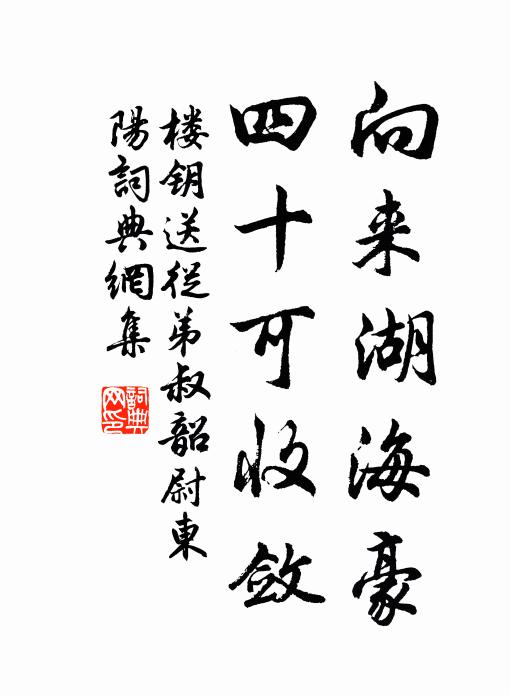 向来湖海豪
四十可收敛
楼钥送从弟叔韶尉東
陽詞典網集
詞典
网印